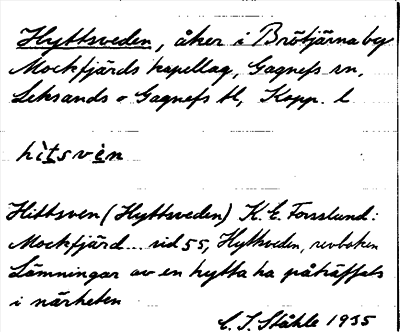 Hyttsveden, åker i Brötjärna by
Mockfjärds kapellag, Gagnefs sn,
Leksands o Gagnefs tl, Kopp. l
hìtsvèn
Hittsven (Hyttsveden) K. E. Forsslund:
Mockfjärd... sid 55, Hyttsveden, revboken
Lämningar av en hytta ha påträffats
i närheten
C. I. Ståhle 1935